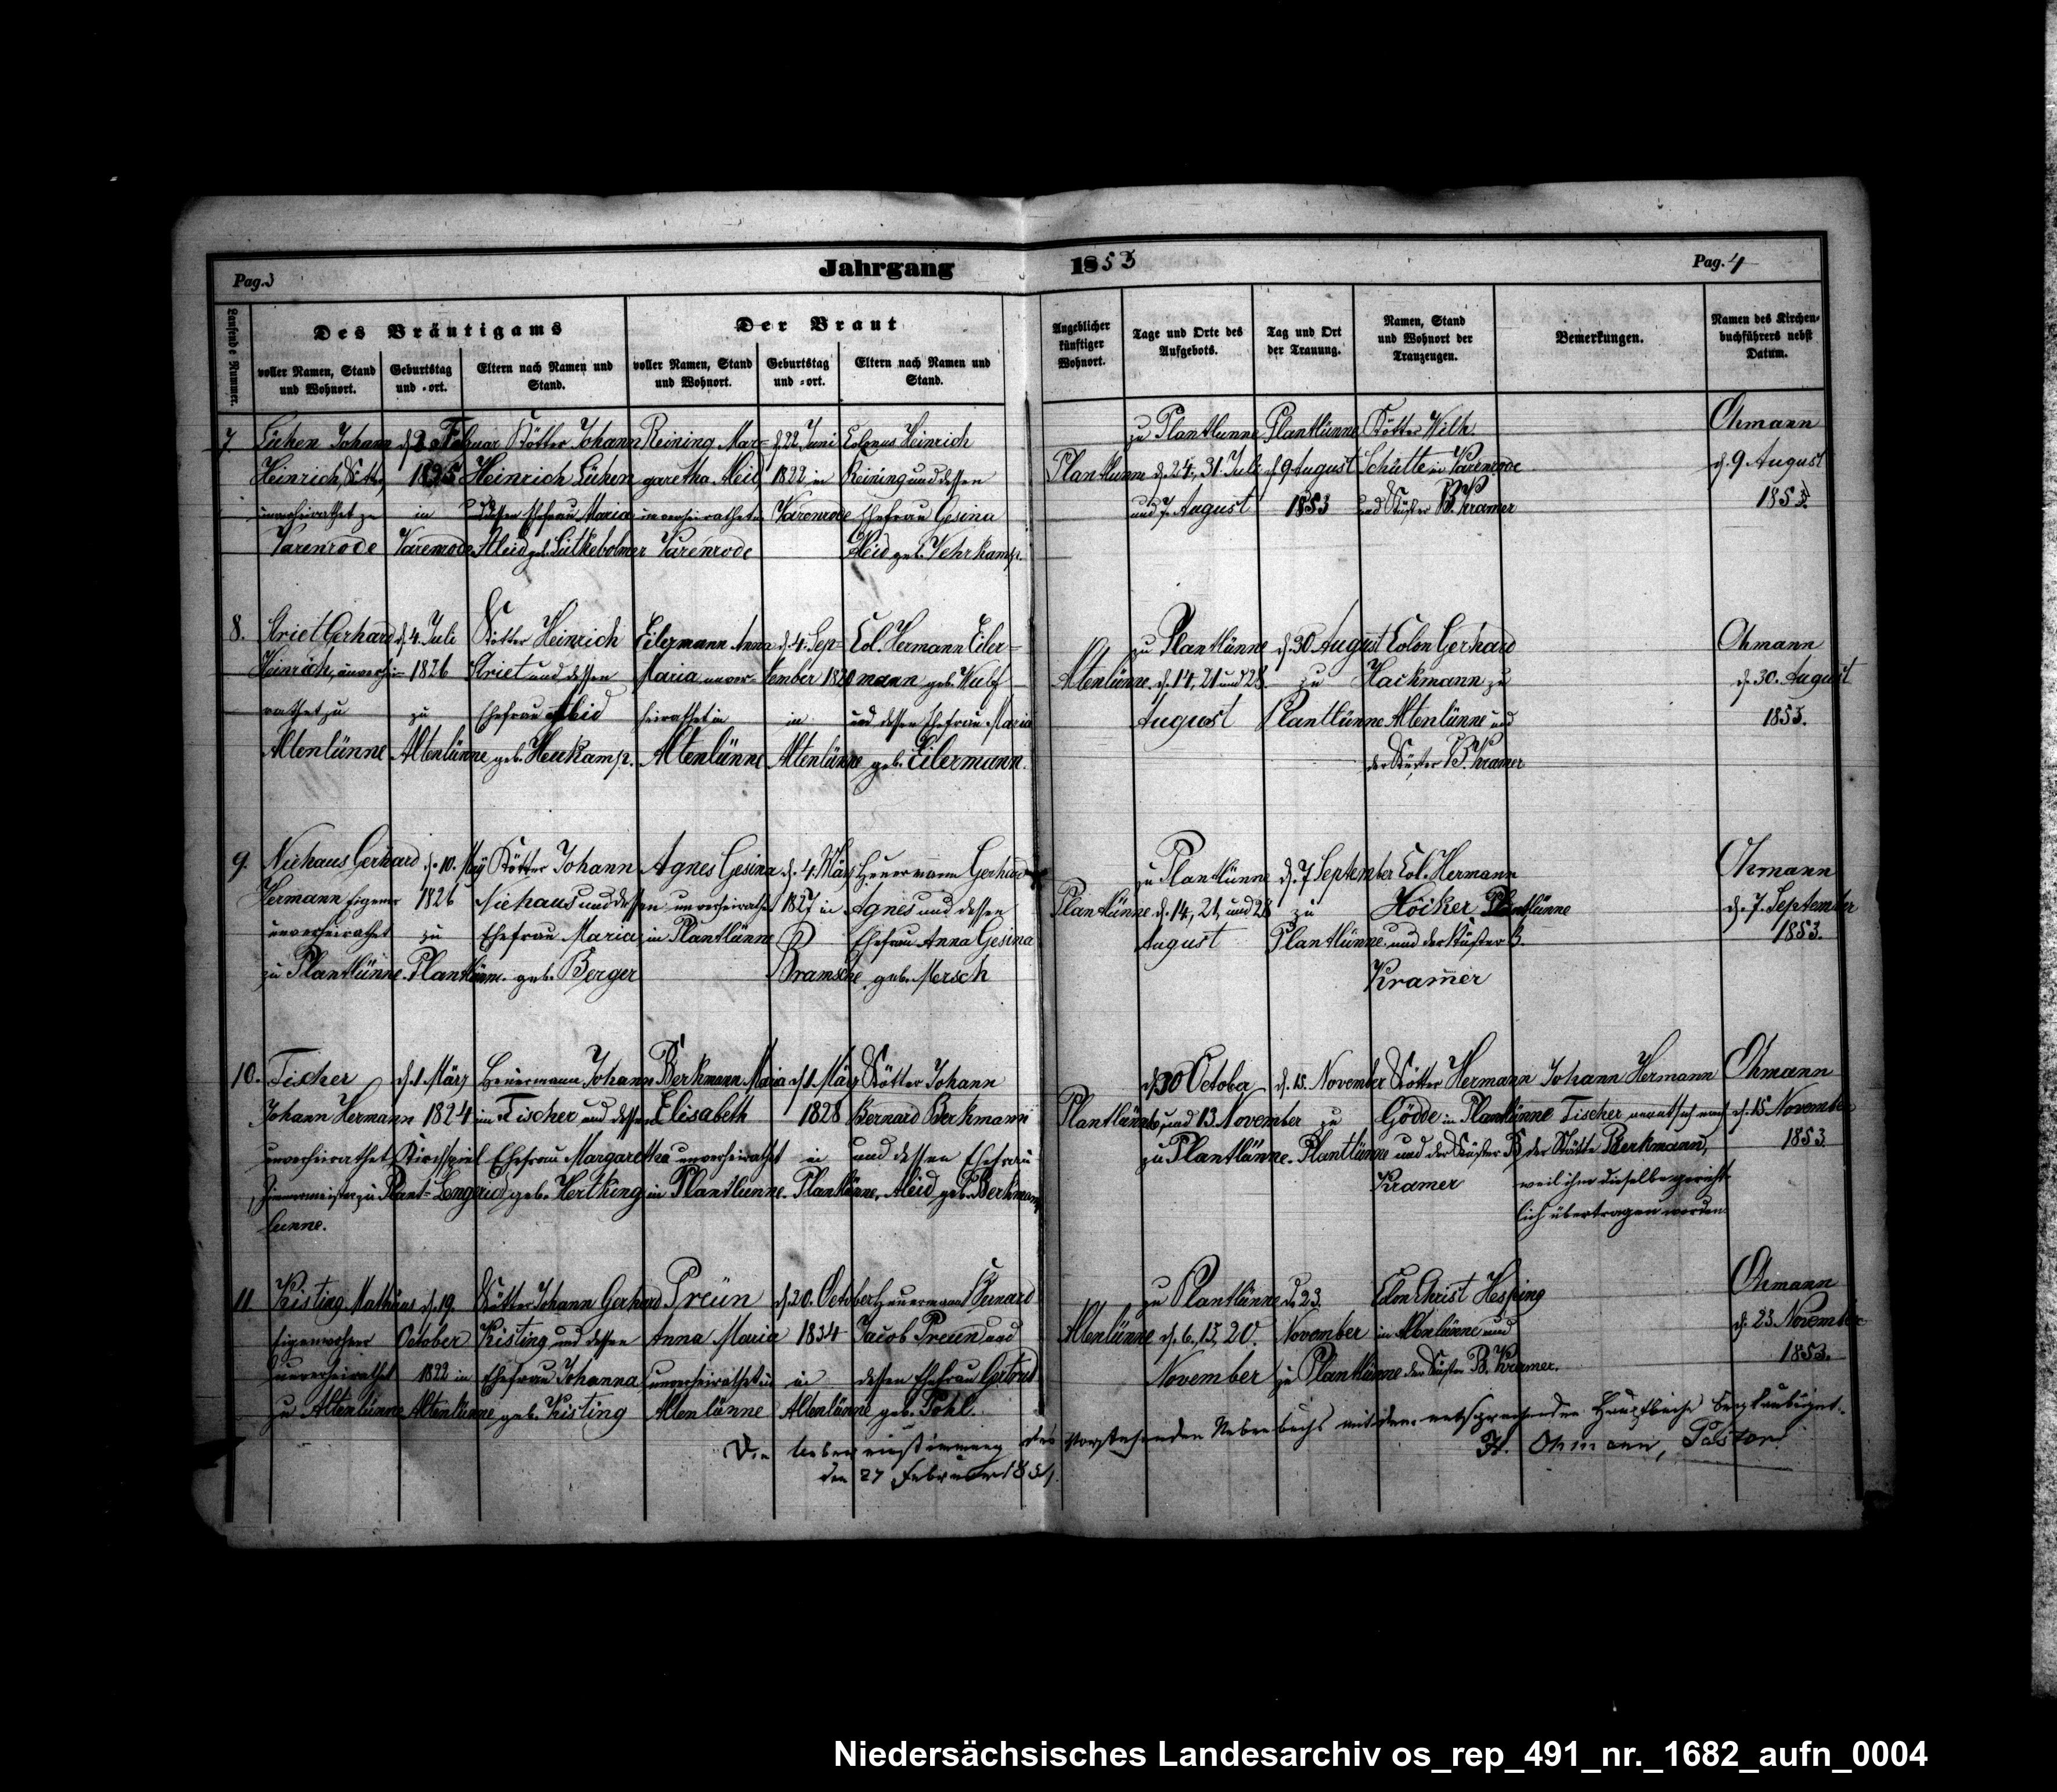 Pag. 3
Jahrgang 1853
Pag. 4
Laufende Nummer.
Des Bräutigams
voller Namen, Stand und Wohnort.
Geburtstag und -ort.
Eltern nach Namen und Stand.
Der Braut
voller Namen, Stand und Wohnort.
Geburtstag und -ort.
Eltern nach Namen und Stand.
Angeblicher künftiger Wohnort.
Tage und Orte des Aufgebots.
Tag und Ort der Trauung.
Namen, Stand und Wohnort der Trauzeugen.
Bemerkungen.
Namen des Kirchenbuchführers nebst Datum.
7. Johann Kötter Johann Reining Mar= d. 22. Juni Colonus Heinrich
Heinrich, 1825 Heinrich Lüken garetha Aleid 1822 in Reining und dessen
unverheirathet zu in und dessen Ehefrau Maria unverheirathet in Varenrode Ehefrau Gesina
Varenrode Varenrode Aleid geb. Varenrode Aleid geb. Vehrkamp.
zu Plantlünne Plantlünne Kötter Wilh Ohmann
Plantlünne d. 24., 31. Juli d. 9 August Schütte in Varenrode d. 9 August
und 7. August 1853 und Küster B. Kramer 1853.
8. Griet Gerhard d. 4. Juli Kötter Heinrich Eilermann Anna d. 4. Sep= Col. Hermann Eiler=
Heinrich, unverhei= 1826 Griet und dessen Maria unver= tember 1820 mann geb. Wulf
rathet zu zu Ehefrau Aleid heirathet in in und dessen Ehefrau Maria
Altenlünne Altenlünne geb. Heukamp. Altenlünne Altenlünne geb. Eilermann.
zu Plantlünne d. 30 August Colon Gerhard Ohmann
Altenlünne d. 14, 21 und 28. zu Hackmann zu d. 30. August
August Plantlünne Altenlünne und 1853.
der Küster B. Kramer
9. Niehaus Gerhard d. 10. May Kötter Johann Agnes Gesina d. 4. März Heuermann Gerhard
Hermann Eigener 1826 Niehaus und dessen unverheirathet 1827 in Agnes und dessen
unverheirathet zu Ehefrau Maria in Plantlünne Ehefrau Anna Gesina
zu Plantlünne. Plantlünne. geb. Berger Bramsche geb. Mersch
zu Plantlünne d. 7 September Col. Hermann Ohmann
Plantlünne d. 14, 21, und 28 zu Höcker Plantlünne d. 7. September
August Plantlünne und der Küster B. 1853.
Kramer
10. Fischer d. 1. März Heuermann Johann Berkmann Maria d. 1. März Kötter Johann
Johann Hermann 1824 in Fischer und dessen Elisabeth 1828 Bernard Berkmann
unverheirathet Kirchspiel Ehefrau Margaretha unverheirathet in und dessen Ehefrau
zu Plant= Lengerich geb. Hertking in Plantlünne. Plantlünne. Aleid geb. Berkmann
lunne.
d. 30 October d. 15. November Kötter Hermann Johann Hermann Ohmann
Plantlünne und 13. November zu Gödde in Plantlünne Fischer nennt sich nach d. 15 November
zu Plantlünne. Plantlünne und der Küster B. der Stätte Berkmann, 1853
Kramer weil ihm dieselbe gericht=
lich übertragen worden.
11. Kisting Mathias d. 19. Kötter Johann Gerhard Preün d. 20. October Heuermann Bernard
October Kisting und dessen Anna Maria 1834 Jacob Preün und
unverheirathet 1822 in Ehefrau Johanna unverheirathet in in dessen Ehefrau Gertrud
zu Altenlünne Altenlünne geb. Kisting Altenlünne Altenlünne geb. Pohl.
zu Plantlünne d. 23. Colon Christ Hesping Ohmann
Altenlünne d. 6, 13, 20. November in Altenlünne und d. 23. November
November zu Plantlünne der Küster B. Kramer. 1853.
Die Uebereinstimmung des vorstehenden Nebenbuchs mit dem entsprechenden Hauptbuche beglaubigt.
den 27 Februar 1854. H. Ohmann, Pastor.
Niedersächsisches Landesarchiv os_rep_491_nr._1682_aufn_0004